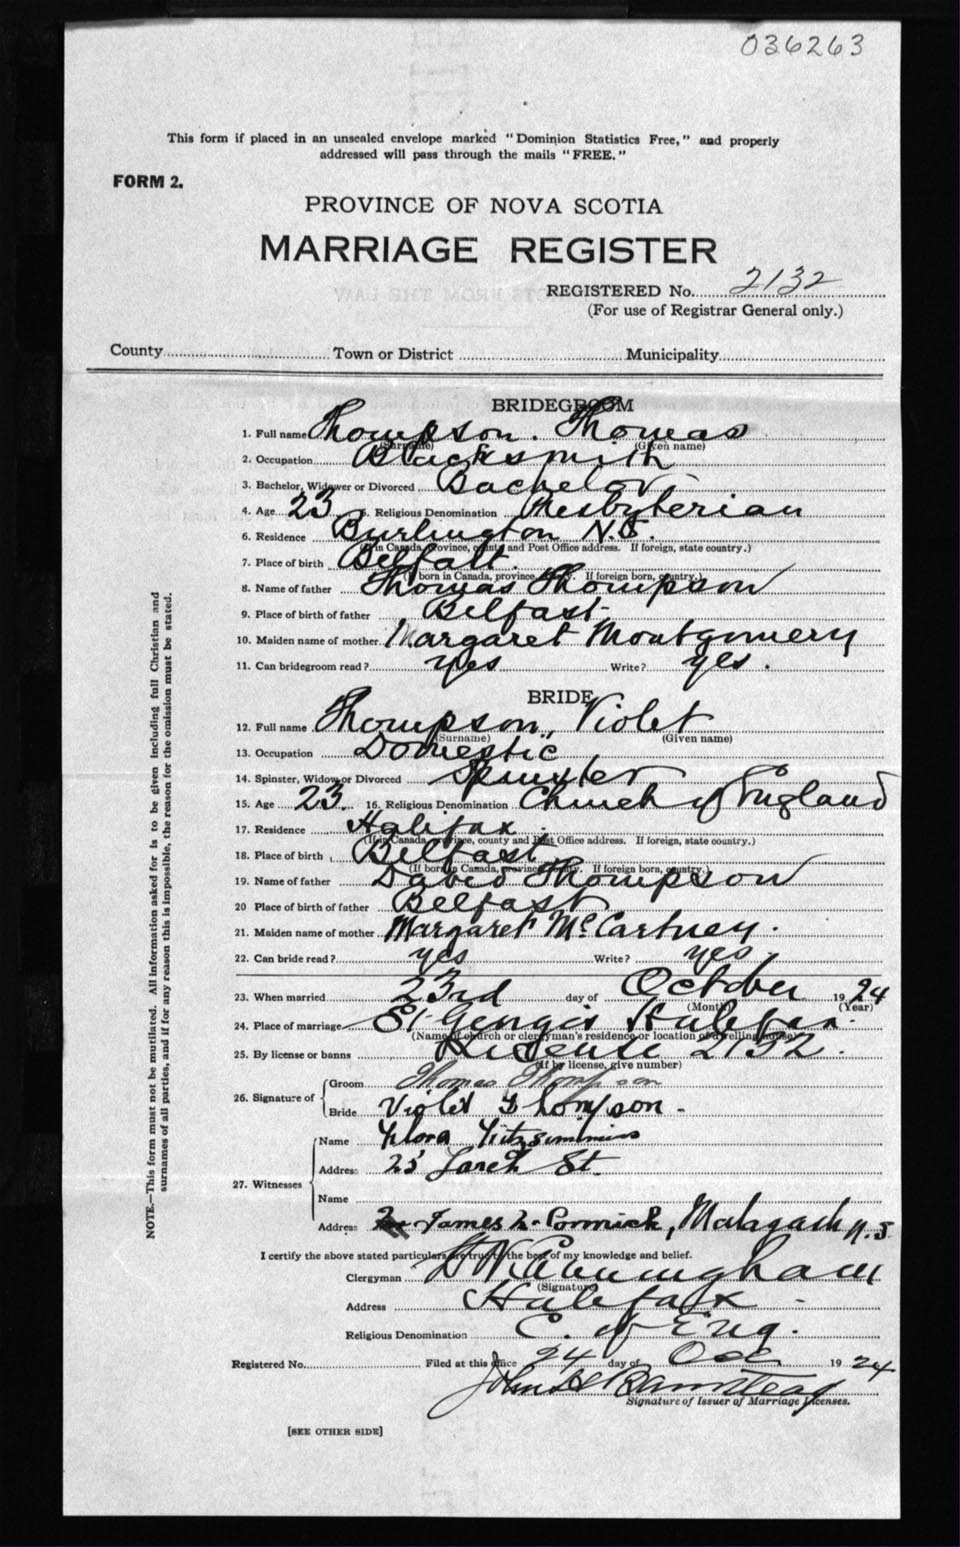 036263
This form if placed in an unsealed envelope marked "Dominion Statistics Free," and properly
addressed will pass through the mails "FREE."
FORM 2.
PROVINCE OF NOVA SCOTIA
MARRIAGE REGISTER
REGISTERED No. 2132
(For use of Registrar General only.)
County Town or District Municipality
BRIDEGROOM
1. Full name Thompson. Thomas
(Surname) (Given name)
2. Occupation Blacksmith
3. Bachelor, Widower or Divorced Bachelor
4. Age 23 5. Religious Denomination Presbyterian
6. Residence Burlington N.S.
(If in Canada, province, county and Post Office address. If foreign, state country.)
7. Place of birth Belfast.
(If born in Canada, province, county. If foreign born, country.)
8. Name of father Thomas Thompson
9. Place of birth of father Belfast
10. Maiden name of mother Margaret Montgomery
11. Can bridegroom read? yes Write? yes.
BRIDE
12. Full name Thompson, Violet
(Surname) (Given name)
13. Occupation Domestic
14. Spinster, Widow or Divorced Spinster
15. Age 23. 16. Religious Denomination Church of England
17. Residence Halifax.
(If in Canada, province, county and Post Office address. If foreign, state country.)
18. Place of birth Belfast
(If born in Canada, province, county. If foreign born, country.)
19. Name of father David Thompson
20 Place of birth of father Belfast
21. Maiden name of mother Margaret McCartney.
22. Can bride read? yes Write? yes.
23. When married 23rd day of October 1924
(Month) (Year)
24. Place of marriage St George's Halifax.
(Name of church or clergyman's residence or location of dwelling house)
25. By license or banns License 2132.
(If by license, give number)
26. Signature of
Groom Thomas Thompson
Bride Violet Thompson.
27. Witnesses
Name Flora Fitzsimmins
Address 25 Larch St.
Name
Address James L. Cormick, Malagash N.S
I certify the above stated particulars are true to the best of my knowledge and belief.
Clergyman Cunningham
(Signature)
Address Halifax
Religious Denomination C. of Eng.
Registered No. Filed at this office 24 day of Oct 1924
John
Signature of Issuer of Marriage Licenses.
[SEE OTHER SIDE]
NOTE.—This form must not be mutilated. All information asked for is to be given including full Christian and
surnames of all parties, and if for any reason this is impossible, the reason for the omission must be stated.